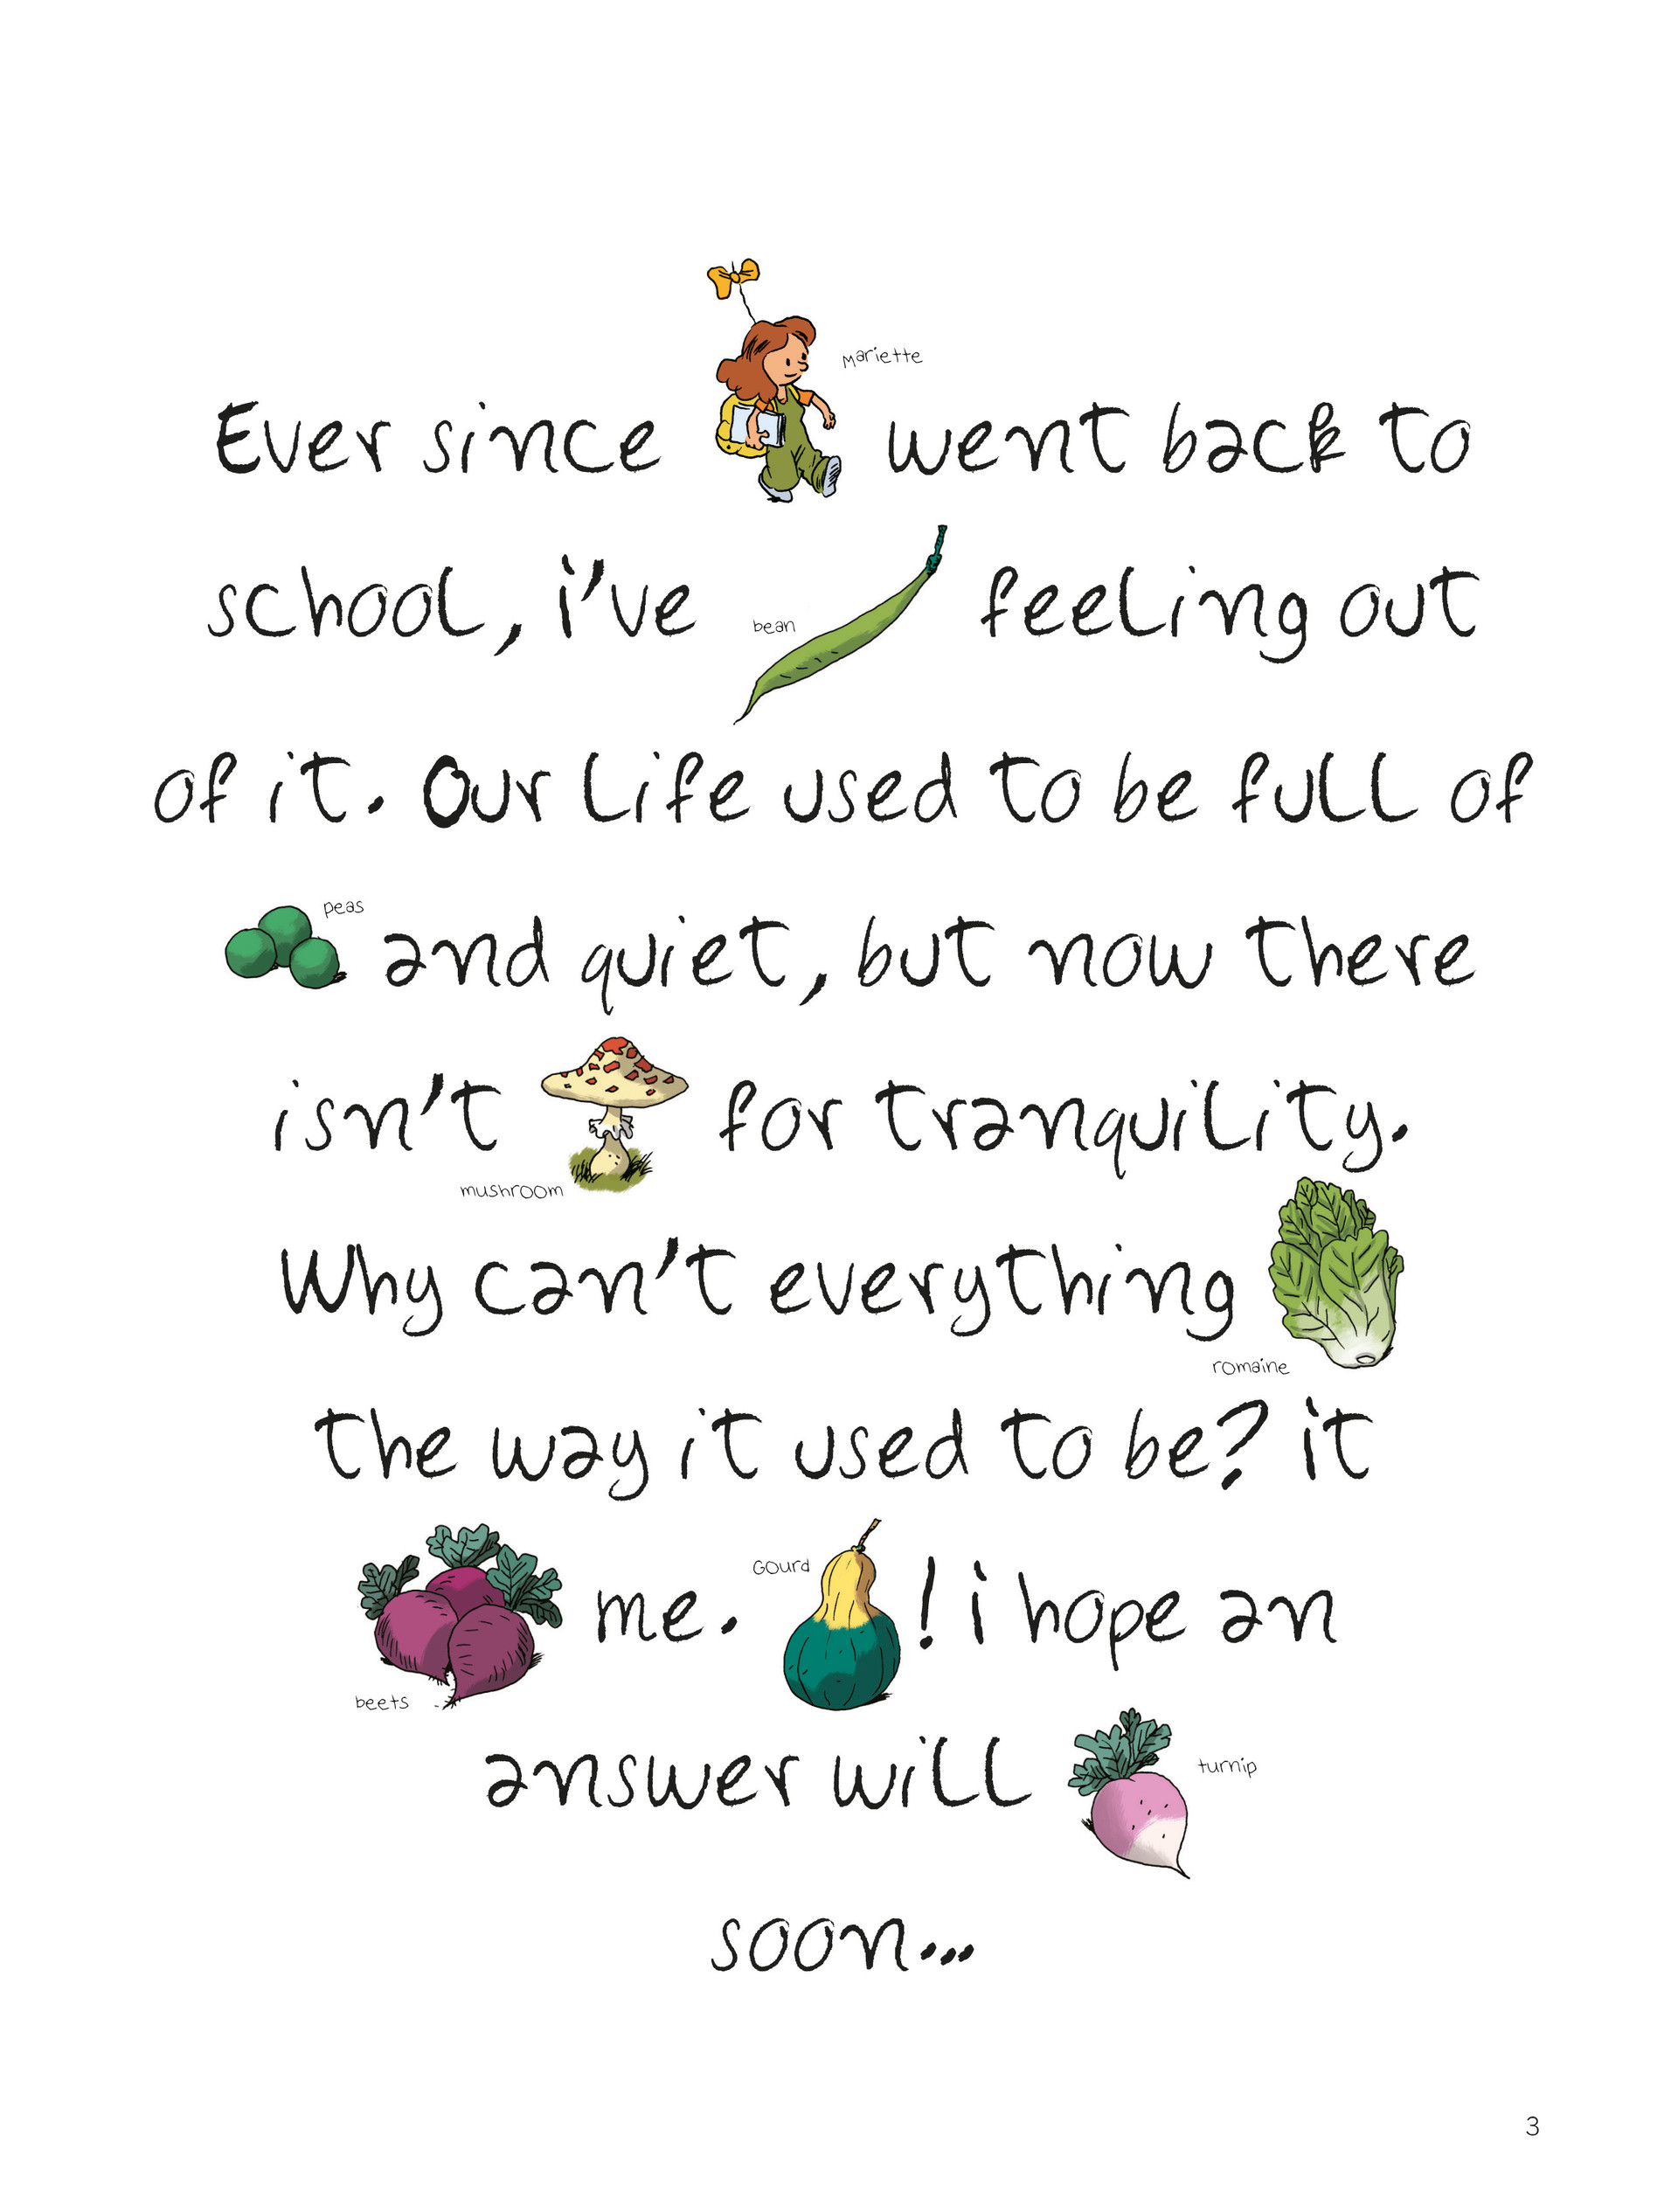 Mariette
Ever since went back to
school, i've bean feeling out
of it. Our life used to be full of
peas and quiet, but now there
isn't for tranquility.
mushroom
Why can't everything
romaine
the way it used to be? it
me. Gourd ! i hope an
beets
answer will turnip
soon...
3